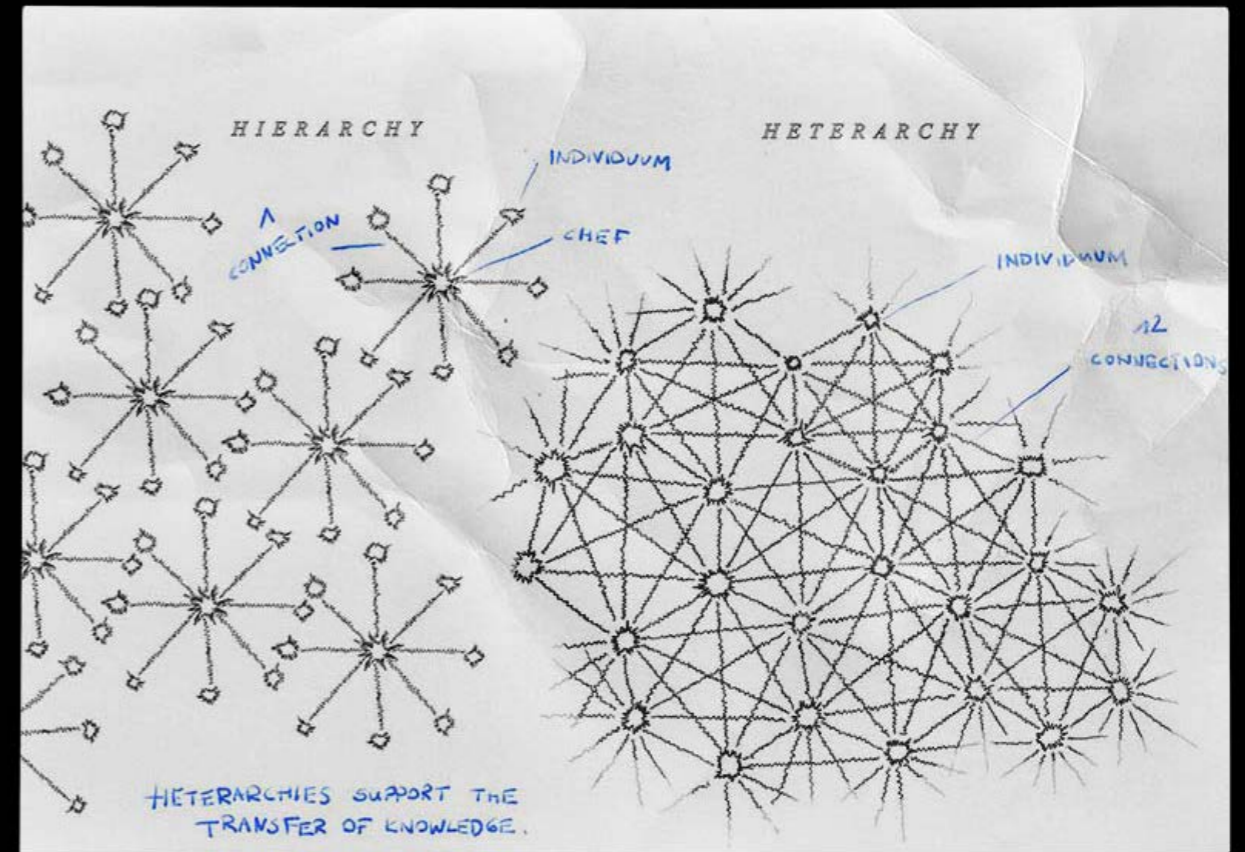 HIERARCHY
HETERARCHY
INDIVIDUUM
1
CONNECTION
CHEF
INDIVIDUUM
12
CONNECTIONS
HETERARCHIES SUPPORT THE
TRANSFER OF KNOWLEDGE.